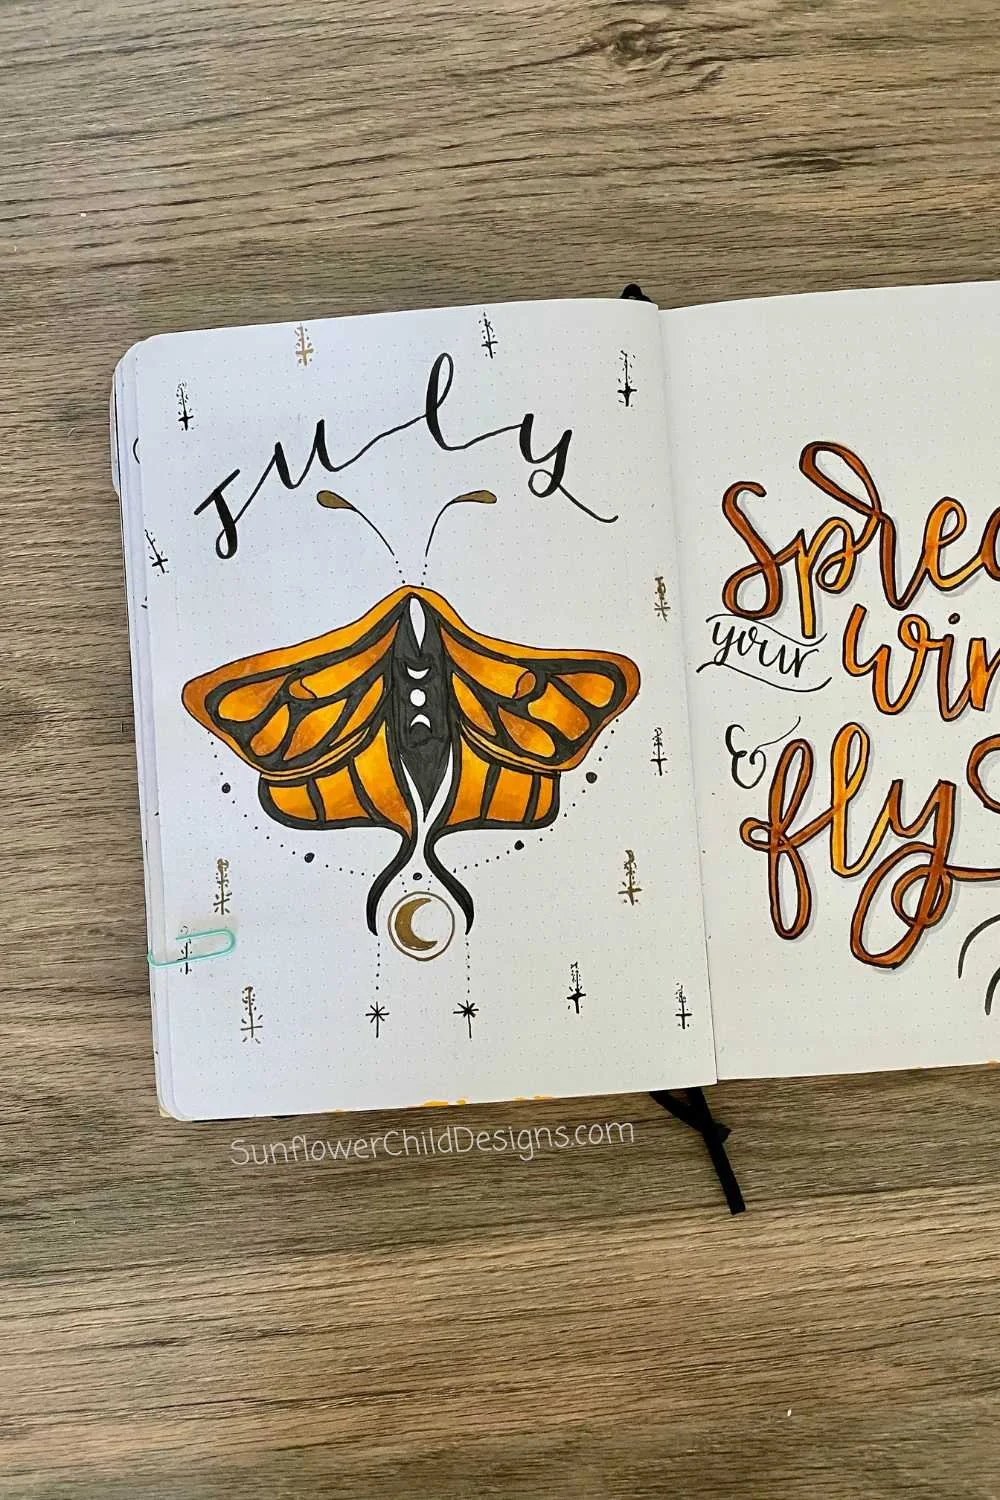 July
your
&
fly
SunflowerChildDesigns.com